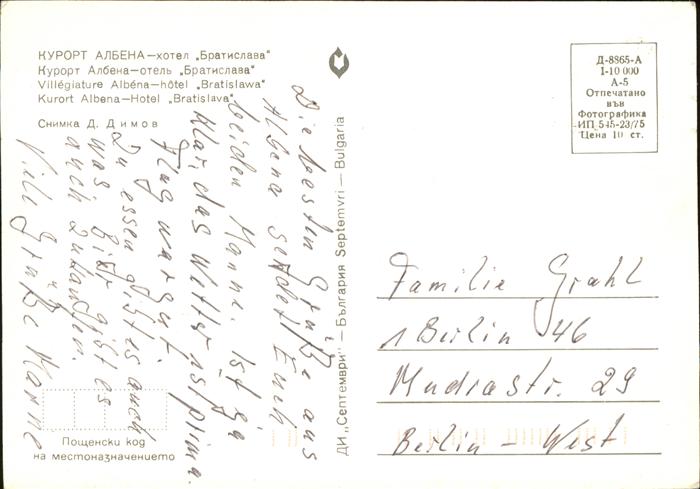 КУРОРТ АЛБЕНА—хотел „Братислава“
Курорт Албена—отель „Братислава“
Villégiature Albéna—hôtel „Bratislawa“
Kurort Albena—Hotel „Bratislava“
Снимка Д. Димов
Die besten Grüße aus
Albena sendet Euch
beiden Manne. Ist ja
klar, das Wetter ist prima.
Flug war gut
Zu essen gibt es auch
was hier gibt es
auch
Viele Grüße Manne
Пощенски код
на местоназначението
ДИ „Септември“ — България Septemvri — Bulgaria
Д-8865-А
I-10 000
А-5
Отпечатано
във
Фотографика
ИП 545-23/75
Цена 10 ст.
Familie Grahl
1 Berlin 46
Mudrastr. 29
Berlin – West